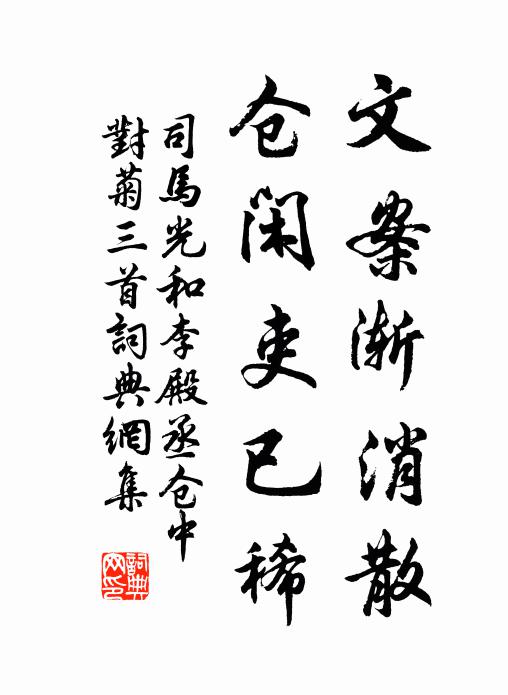 文案渐消散
仓闲吏已稀
司馬光和李殿丞仓中
對菊三首詞典網集
詞典
网印